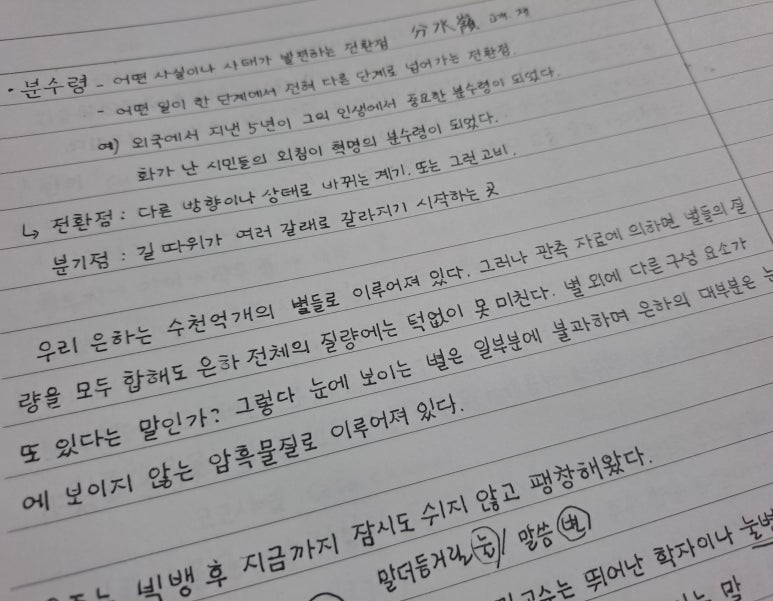 · 분수령 - 어떤 사실이나 사태가 발전하는 전환점 分水嶺
- 어떤 일이 한 단계에서 전혀 다른 단계로 넘어가는 전환점.
예) 외국에서 지낸 5년이 그의 인생에서 중요한 분수령이 되었다.
화가 난 시민들의 외침이 혁명의 분수령이 되었다.
↳ 전환점 : 다른 방향이나 상태로 바뀌는 계기. 또는 그런 고비.
분기점 : 길 따위가 여러 갈래로 갈라지기 시작하는 곳
우리 은하는 수천억개의 별들로 이루어져 있다. 그러나 관측 자료에 의하면 별들의 질
량을 모두 합해도 은하 전체의 질량에는 턱없이 못 미친다. 별 외에 다른 구성 요소가
또 있다는 말인가? 그렇다 눈에 보이는 별은 일부분에 불과하며 은하의 대부분은 눈
에 보이지 않는 암흑물질로 이루어져 있다.
빅뱅 후 지금까지 잠시도 쉬지 않고 팽창해왔다.
말더듬거릴 눌 / 말씀 변
뛰어난 학자이나 눌변
말